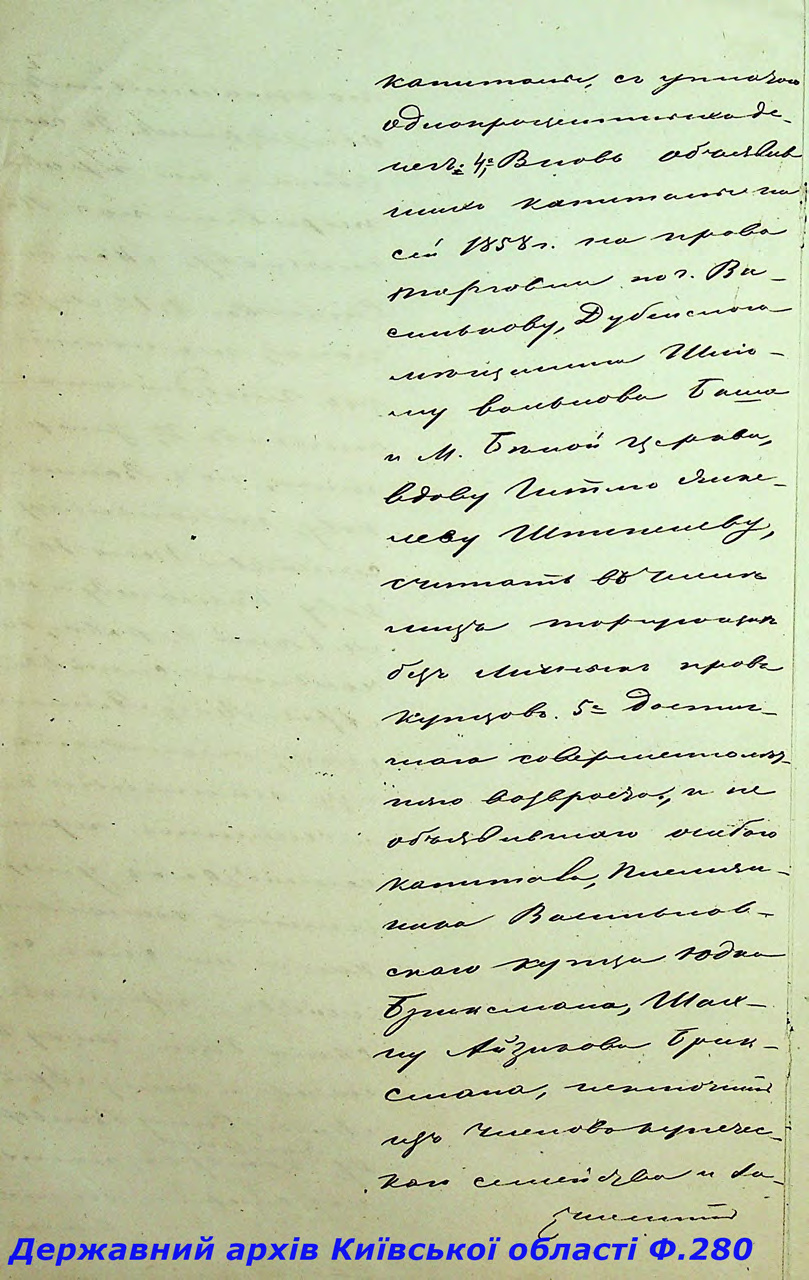 капиталы, съ уплатою
однопроцентныхъ де-
негъ; 4е, Вновь объявив
шихъ капиталы на
сей 1858 г. на право
торговли по г. Ва-
силькову, Дубенскаго
мещанина Шлио-
му Волькова Баша
и М. Белой Церкви,
вдову Гитлю Янке-
леву
считать въ числе
лицъ торгующихъ
безъ личныхъ правъ
купцовъ. 5е Достиг-
шаго совершеннолет-
няго возраста, и не
объявившаго особаго
капитала, Племян-
ника Васильков-
скаго купца Юдки
Бриксмана, Шах-
ну Айзикова Брик-
смана, исключить
изъ членовъ купечес-
каго семейства и за-
числить
Державний архів Київської області Ф.280